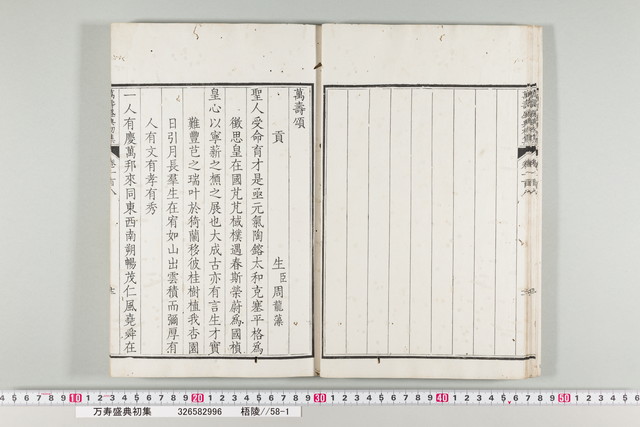 萬壽頌
貢 生臣周龍藻
聖人受命育才是亟元氣陶鎔太和克塞平格爲
徵思皇在國芃芃棫樸遇春斯榮蔚爲國楨
皇心以寧薪之槱之展也大成古亦有言生才實
難豐芑之瑞叶於猗蘭移彼桂樹植我杏園
日引月長羣生在宥如山出雲積而彌厚有
人有文有孝有秀
一人有慶萬邦來同東西南朔暢茂仁風堯舜在
萬壽盛典初集
卷一百八
万寿盛典初集 326582996 梧陵//58-1
10 20 30 40 50